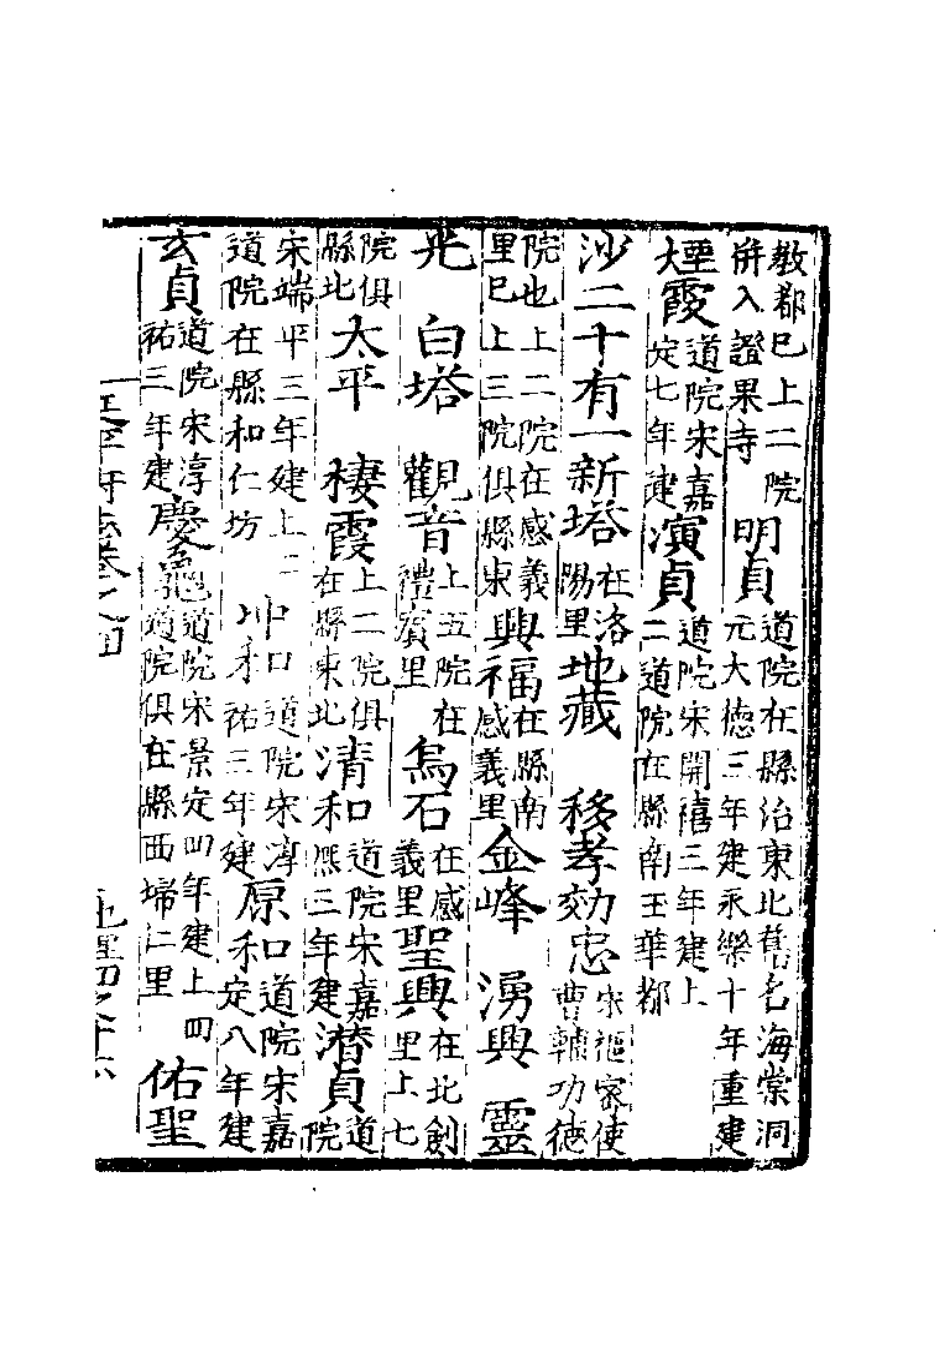 教都巳上二院併入證果寺明貞道院在縣治東北舊名海棠洞元大德三年建永樂十年重建
煙霞道院宋嘉定七年建演貞道院宋開禧三年建上二道院在縣南玉華都
沙二十有一新塔在洛陽里地藏 移孝効忠宋樞密使曹輔功德
院也上二院在感義里巳上三院俱縣東興福在縣南感義里金峰 湧興 靈
光 白塔 觀音上五院在禮賓里烏石在感義里聖興在北創里上七
院俱縣北太平 棲霞上二院俱在縣東北清和道院宋嘉熙三年建潜貞道院
宋端平三年建上二道院在縣和仁坊 冲和道院宋淳祐三年建原和道院宋嘉定八年建
玄貞道院宋淳祐三年建慶龜道院宋景定四年建上四道院俱在縣西歸仁里 佑聖